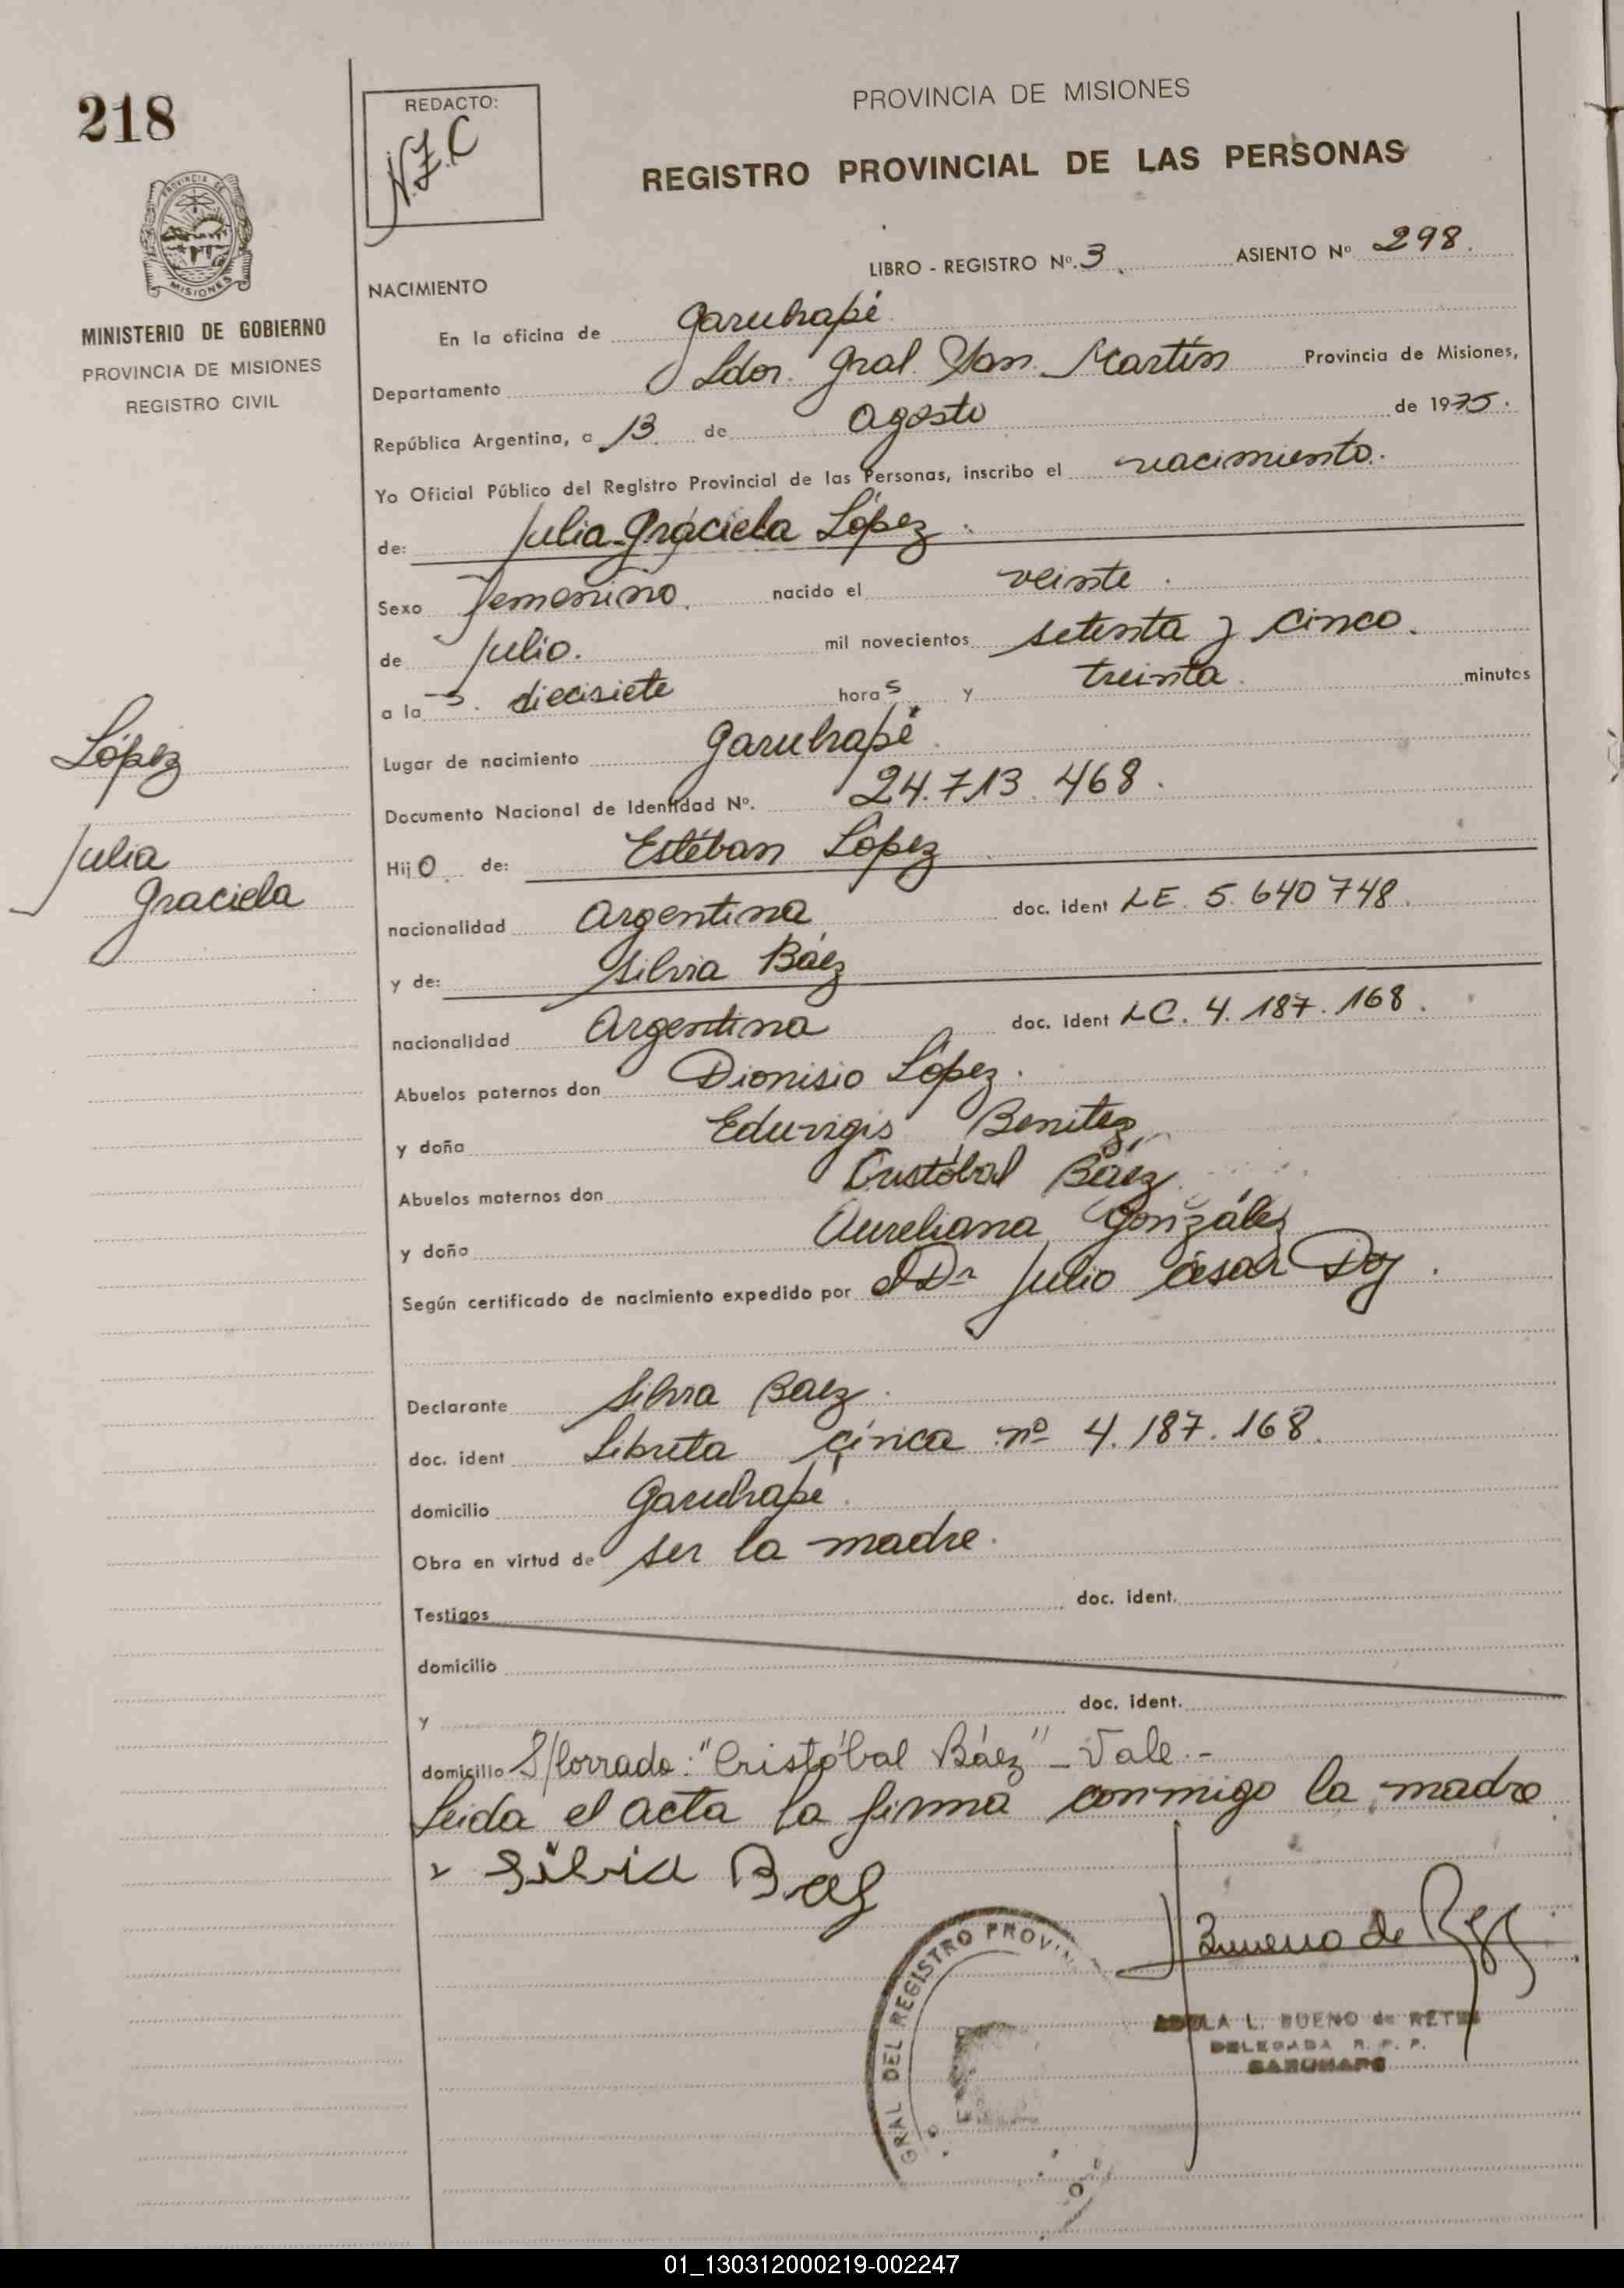 218
REDACTO:
N.Z.C
PROVINCIA DE MISIONES
REGISTRO PROVINCIAL DE LAS PERSONAS
PROVINCIA DE
MISIONES
MINISTERIO DE GOBIERNO
PROVINCIA DE MISIONES
REGISTRO CIVIL
LIBRO - REGISTRO Nº. 3. ASIENTO Nº 298.
NACIMIENTO
En la oficina de Garuhapé.
Departamento Ldor. Gral. San Martín Provincia de Misiones,
República Argentina, a 13 de Agosto de 1975.
Yo Oficial Público del Registro Provincial de las Personas, inscribo el nacimiento.
de: Julia Graciela López.
Sexo femenino. nacido el veinte.
de Julio. mil novecientos setenta y cinco.
a la s. diecisiete horas y treinta. minutos
Lugar de nacimiento Garuhapé.
Documento Nacional de Identidad Nº. 24.713.468.
Hijo de: Estéban López
nacionalidad Argentina doc. ident LE. 5.640748.
y de: Silvia Báez
nacionalidad Argentina doc. ident LC. 4.187.168.
Abuelos paternos don Dionisio López.
y doña Eduvigis Benitez
Abuelos maternos don Cristóbal Báez
y doña Aureliana González
Según certificado de nacimiento expedido por el Dr Julio César Doj.
López
Julia
Graciela
Declarante Silvia Baez.
doc. ident Libreta cívica nº 4.187.168.
domicilio Garuhapé.
Obra en virtud de ser la madre.
Testigos doc. ident.
domicilio
y doc. ident.
domicilio S/borrado: "Cristóbal Báez" - Vale.-
Leida el acta la firma conmigo la madre
Silvia Baez
Bueno de
GRAL DEL REGISTRO PROVIN
ADELA L. BUENO de RETE
DELEGADA R. P. P.
GARUHAPE
01_130312000219-002247